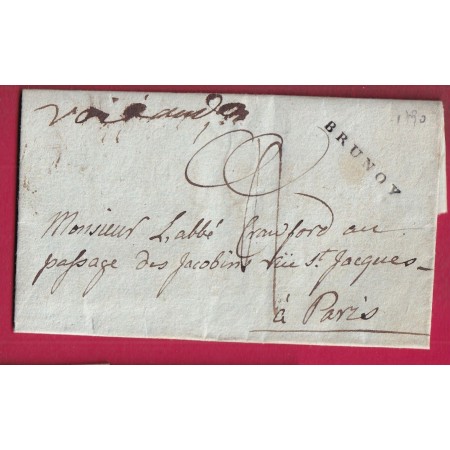 1790
BRUNOY
Monsieur L'abbé Crawford au
passage des Jacobins rüe St. Jacques -
à Paris